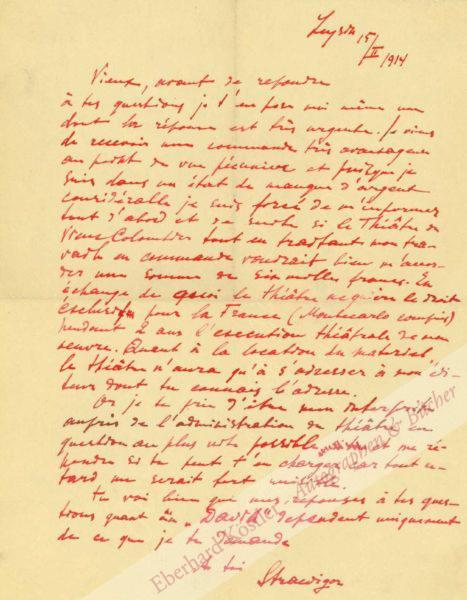 Leysin 15/II 1914
Vieux, avant de repondre
à tes questions je t'en pose moi même une
dont la réponse est très urgente. Je viens
de recevoir une commande très avantageuse
au point de vue pécunière et puisque je
suis dans un état de manque d'argent
considérable je suis forcé de m'informer
tout d'abord et de suite si le Théâtre du
Vieux Colombier tout en traitant mon tra-
vail en commande voudrait bien m'avan-
cer une somme de six mille francs. En
échange de quoi le théâtre acquiert le droit
exclusif pour la France (Montecarlo compris)
pendant 2 ans l'execution théâtrale de mon
oeuvre. Quant à la location du materiel,
le théâtre n'aura qu'à s'adresser à mon édi-
teur dont tu connais l'adresse.
Or je te prie d'être mon interprète
aupris de l'administration du théâtre en
question au plus vite possible et me ré-
pondre si tu peut t'en charger car tout re-
tard me serait fort
Tu voi bien que mes réponses à tes ques-
tions quant au „David" dependent uniquement
de ce que je te demande
à toi
Strawigor
Eberhard Köstler Autographen & Bücher